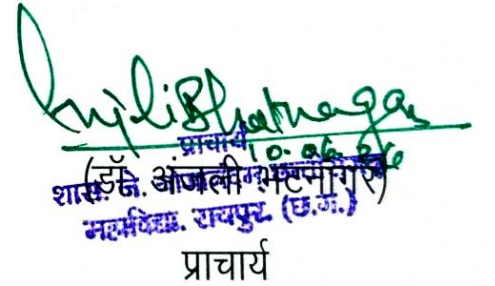 Anjali Bhatnagar
प्राचार्य
10.06.26
(डॉ. अंजली भटनागर)
शास. जे.
महाविद्या. रायपुर (छ.ग.)
प्राचार्य